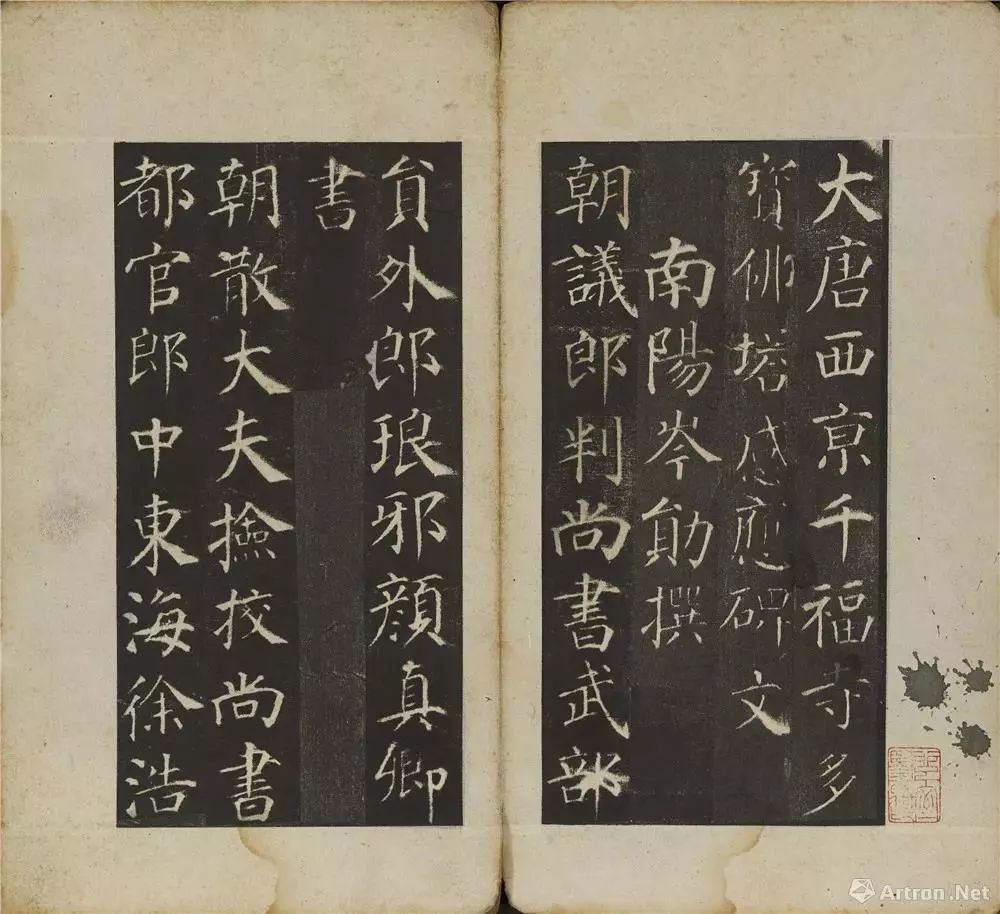 大唐西京千福寺多
寶佛塔感應碑文
南陽岑勛撰
朝議郎判尚書武部
貟外郎琅邪顔真卿
書
朝散大夫撿挍尚書
都官郎中東海徐浩
Artron.Net